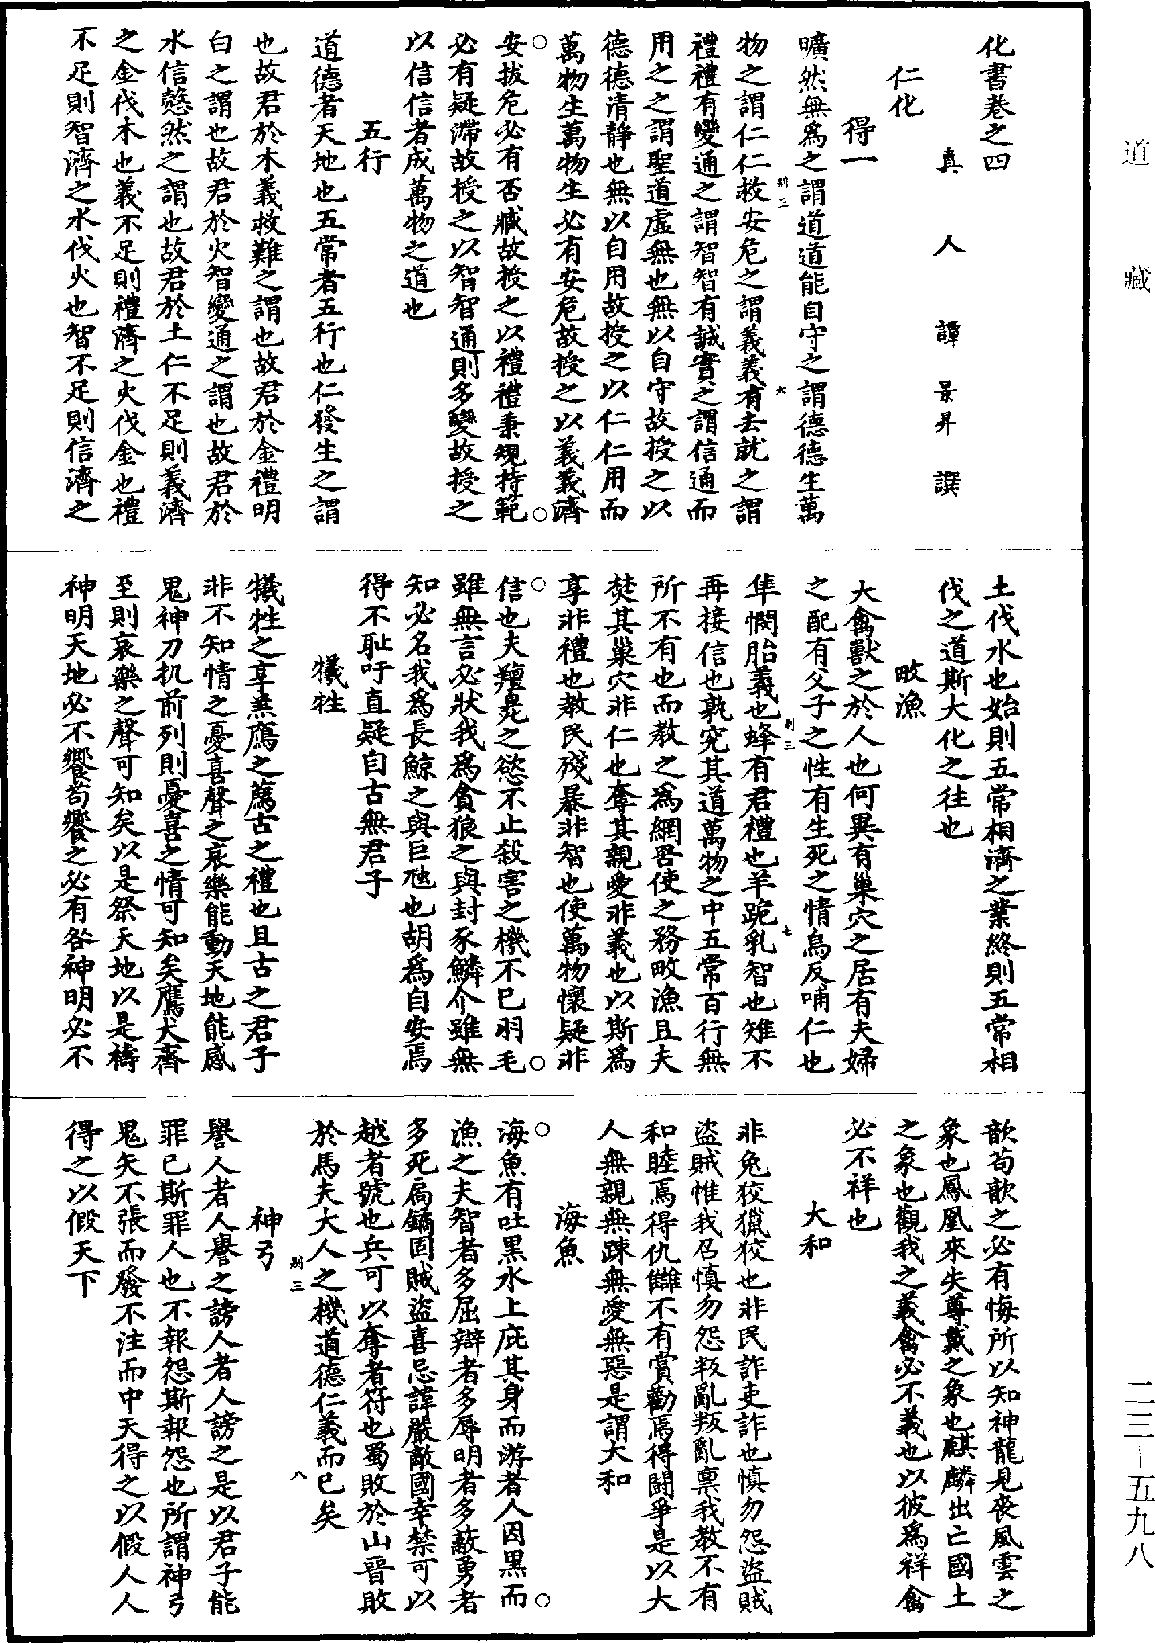 道藏
二三—五九八
化書卷之四
真人譚景昇譔
仁化
得一
曠然無為之謂道道能自守之謂德德生萬
物之謂仁仁救安危之謂義義有去就之謂
禮禮有變通之謂智智有誠實之謂信通而
用之之謂聖道虛無也無以自守故授之以
德德清靜也無以自用故授之以仁仁用而
萬物生萬物生必有安危故授之以義義濟
安拔危必有否臧故授之以禮禮秉規持範
必有疑滯故授之以智智通則多變故授之
以信信者成萬物之道也
五行
道德者天地也五常者五行也仁發生之謂
也故君於木義救難之謂也故君於金禮明
白之謂也故君於火智變通之謂也故君於
水信慤然之謂也故君於土仁不足則義濟
之金伐木也義不足則禮濟之火伐金也禮
不足則智濟之水伐火也智不足則信濟之
土伐水也始則五常相濟之業終則五常相
伐之道斯大化之往也
畋漁
夫禽獸之於人也何異有巢穴之居有夫婦
之配有父子之性有生死之情烏反哺仁也
隼憫胎義也蜂有君禮也羊跪乳智也雉不
再接信也孰究其道萬物之中五常百行無
所不有也而教之為網罟使之務畋漁且夫
焚其巢穴非仁也奪其親愛非義也以斯為
享非禮也教民殘暴非智也使萬物懷疑非
信也夫羶臭之慾不止殺害之機不已羽毛
雖無言必狀我為貪狼之與封豕鱗介雖無
知必名我為長鯨之與巨虺也胡為自安焉
得不恥吁直疑自古無君子
犧牲
犧牲之享羔鴈之薦古之禮也且古之君子
非不知情之憂喜聲之哀樂能動天地能感
鬼神刀机前列則憂喜之情可知矣鷹犬齊
至則哀樂之聲可知矣以是祭天地以是禱
神明天地必不饗苟饗之必有咎神明必不
歆苟歆之必有悔所以知神龍見喪風雲之
象也鳳凰來失尊戴之象也麒麟出亡國土
之象也觀我之義禽必不義也以彼為祥禽
必不祥也
大和
非兔狡獵狡也非民詐吏詐也慎勿怨盜賊
盜賊惟我召慎勿怨叛亂叛亂稟我教不有
和睦焉得仇讎不有賞勸焉得鬪爭是以大
人無親無疎無愛無惡是謂大和
海魚
海魚有吐黑水上庇其身而游者人因黑而
漁之夫智者多屈辯者多辱明者多蔽勇者
多死扃鐍固賊盜喜忌諱嚴敵國幸禁可以
越者號也兵可以奪者符也蜀敗於山晉敗
於馬夫大人之機道德仁義而已矣
神弓
譽人者人譽之謗人者人謗之是以君子能
罪已斯罪人也不報怨斯報怨也所謂神弓
鬼矢不張而發不注而中天得之以假人人
得之以假天下